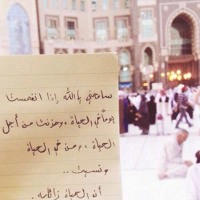 سامحني يا الله إذا انغمست
يوماً في الحياة، وحزنت من أجل
الحياة، ومن في الحياة
ونسيت ..
أن الحياة زائلة.